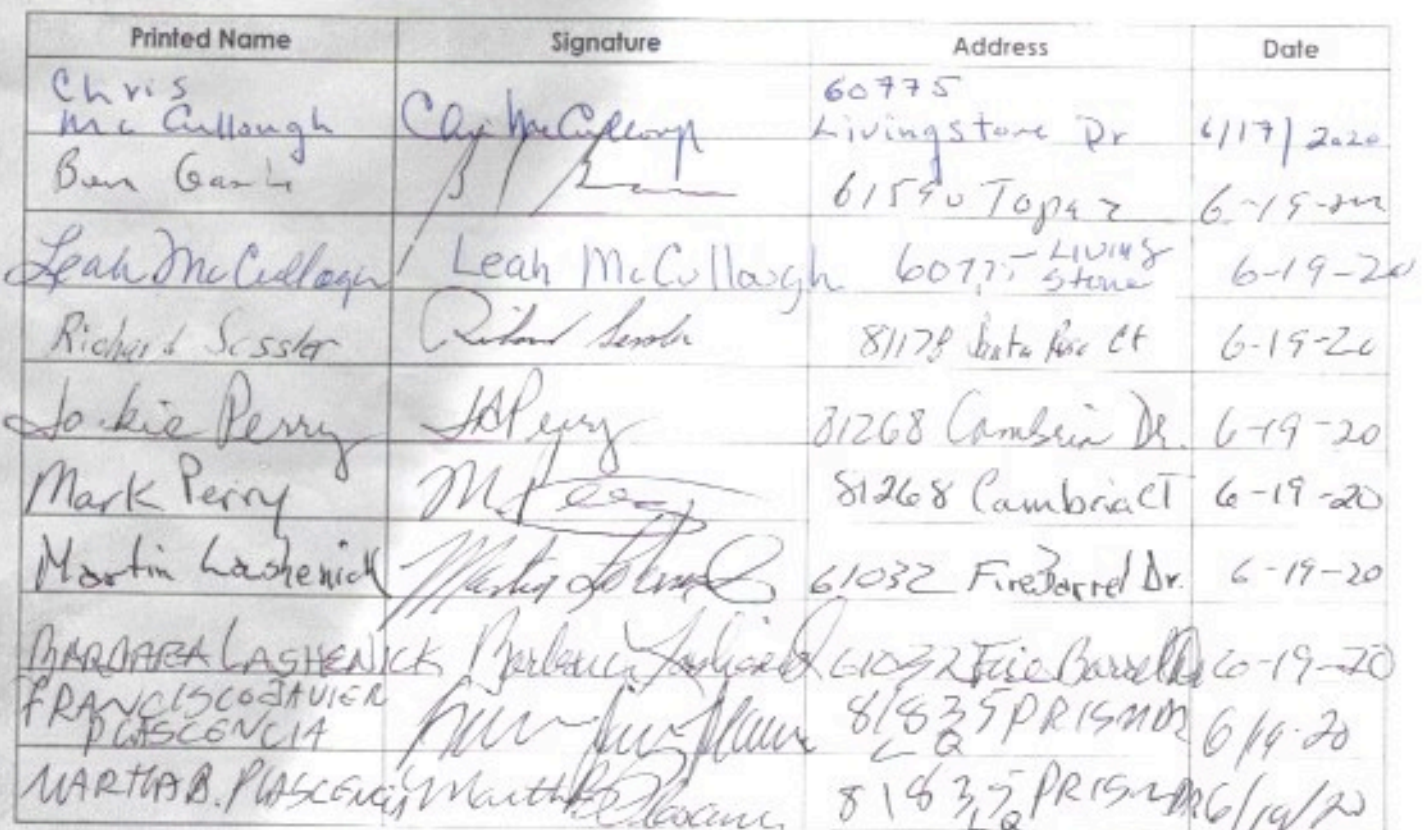 Printed Name Signature Address Date
Chris 60775
McCullough McCullough Livingstone Dr 6/17/2020
Ben 61590 Topaz 6-19-
Leah McCullough Leah McCullough 60775 Living
Stone 6-19-20
Richard Sessler Richard Sessler 81178 Santa Rosa Ct 6-19-20
Jackie Perry JAPerry 81268 Cambria Dr. 6-19-20
Mark Perry M. Perry 81268 Cambria CT 6-19-20
Martin Lashenick Martin 61032 FireBarrel Dr. 6-19-20
BARBARA LASHENICK Barbara Lashenick 61032 Fire Barrell Dr 6-19-20
FRANCISCO JAVIER 81835 PRISM DR
PLASCENCIA LQ 6/19-20
MARTHA B. PLASCENCIA Martha B 81835 PRISM DR 6/19/20
LQ